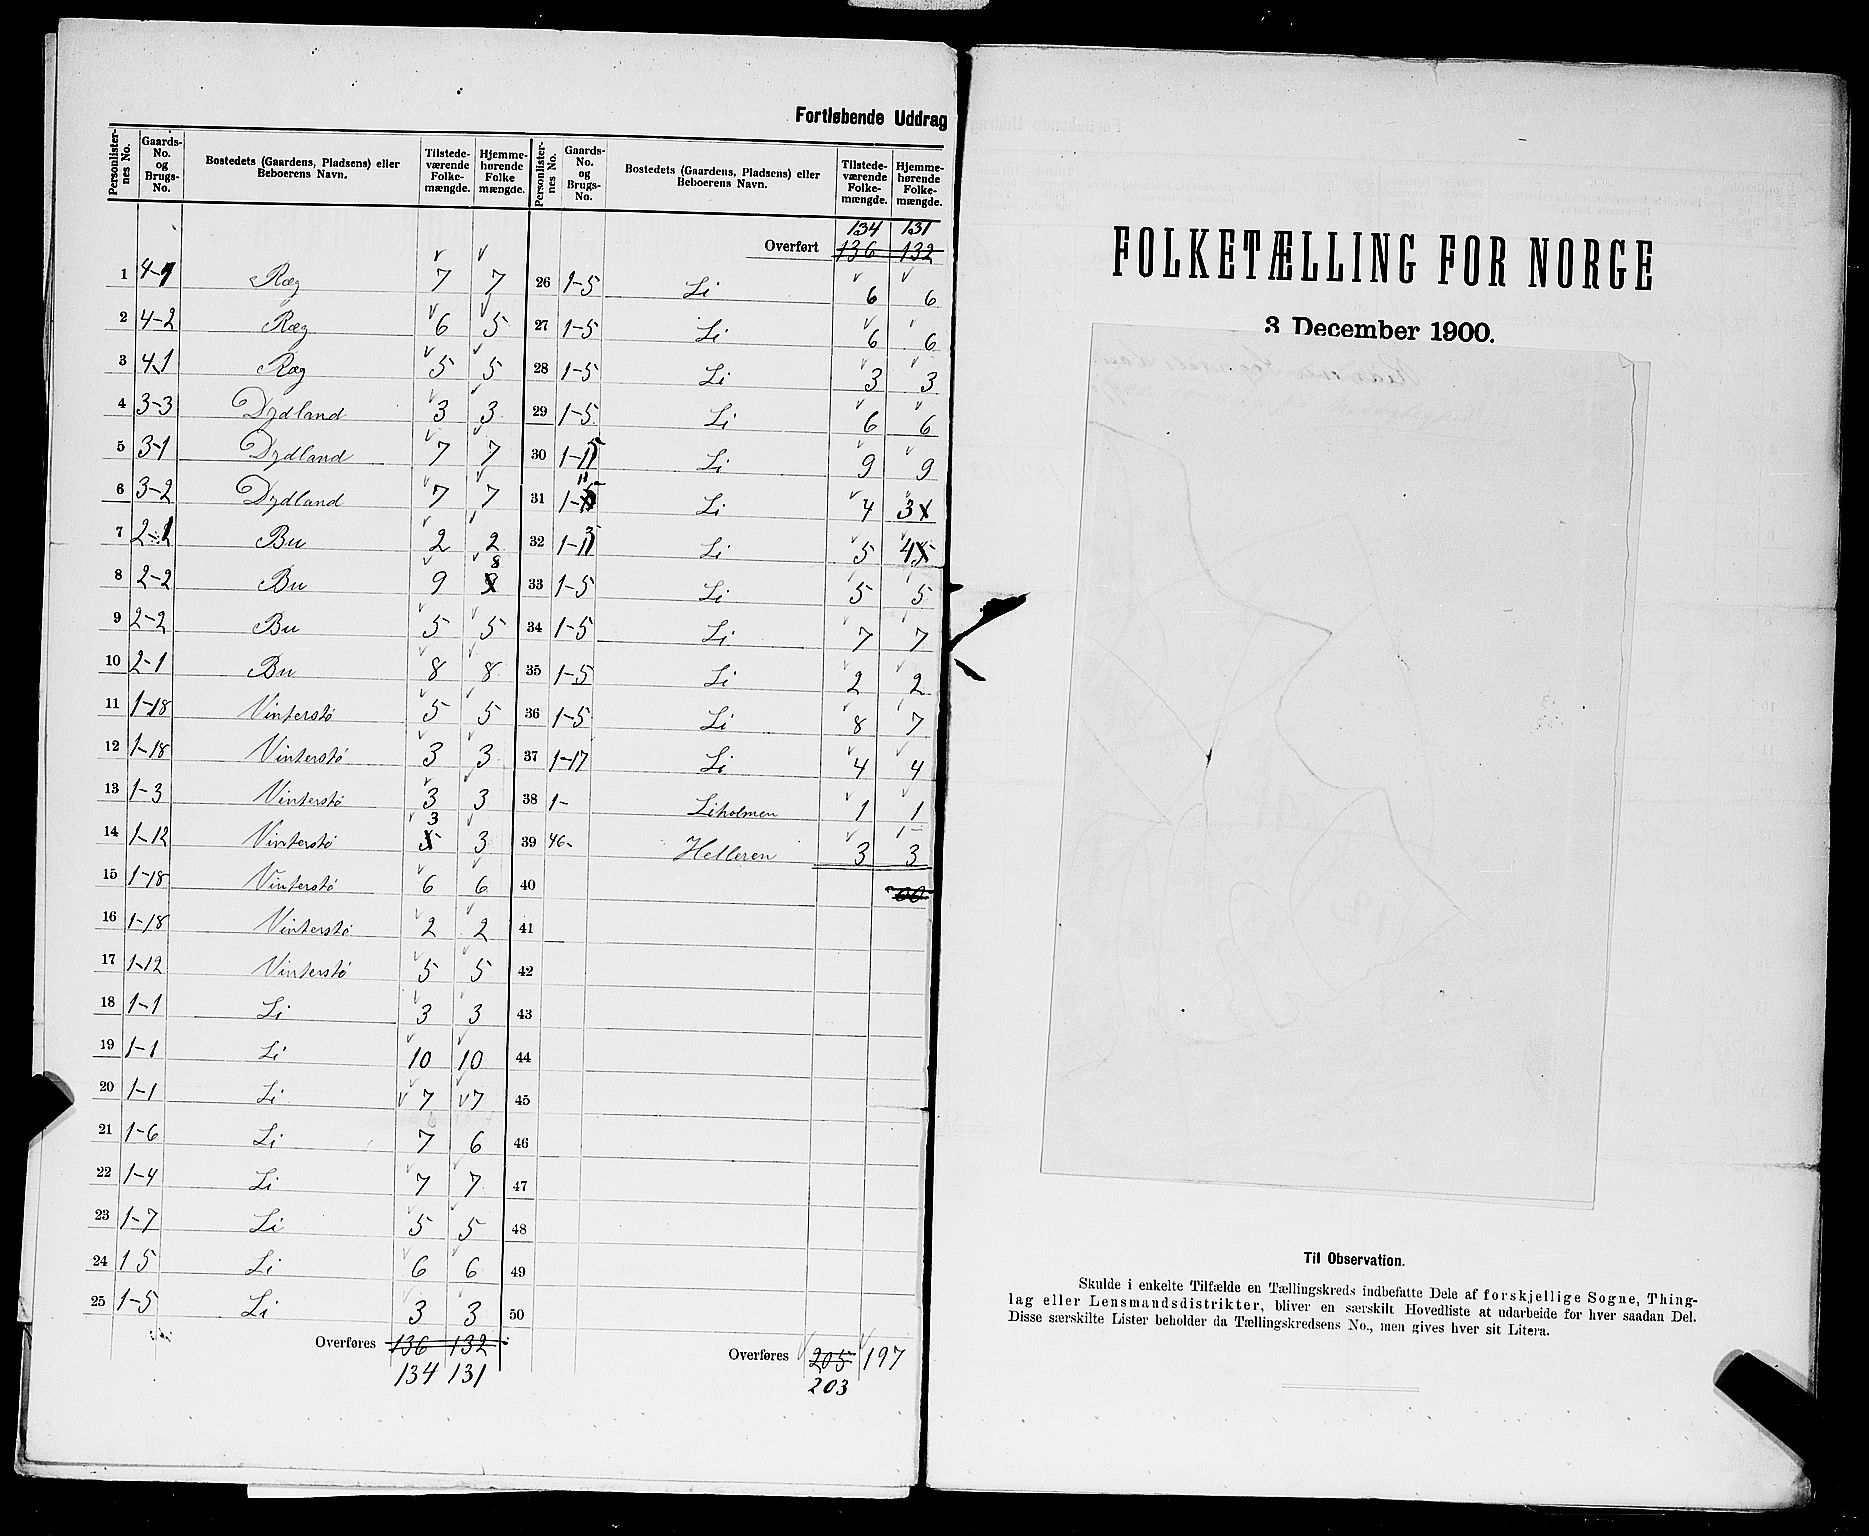 Fortløbende Uddrag
Personlisternes No. | Gaards-No. og Brugs-No. | Bostedets (Gaardens, Pladsens) eller Beboerens Navn. | Tilstedeværende Folkemængde. | Hjemmehørende Folkemængde. | Personlisternes No. | Gaards-No. og Brugs-No. | Bostedets (Gaardens, Pladsens) eller Beboerens Navn. | Tilstedeværende Folkemængde. | Hjemmehørende Folkemængde.
134 131
Overført 136 132
1 4-1 Ræg 7 7 26 1-5 Li 6 6
2 4-2 Ræg 6 5 27 1-5 Li 6 6
3 4-1 Ræg 5 5 28 1-5 Li 3 3
4 3-3 Dydland 3 3 29 1-5 Li 6 6
5 3-1 Dydland 7 7 30 Li 9 9
6 3-2 Dydland 7 7 31 Li 4 3
7 2-1 Bu 2 2 32 Li 5 4
8 2-2 Bu 9 8 33 1-5 Li 5 5
9 2-2 Bu 5 5 34 1-5 Li 7 7
10 2-1 Bu 8 8 35 1-5 Li 2 2
11 1-18 Vinterstø 5 5 36 1-5 Li 8 7
12 1-18 Vinterstø 3 3 37 1-17 Li 4 4
13 1-3 Vinterstø 3 3 38 1- Liholmen 1 1
14 1-12 Vinterstø 3 3 39 46- Helleren 3 3
15 1-18 Vinterstø 6 6 40
16 1-18 Vinterstø 2 2 41
17 1-12 Vinterstø 5 5 42
18 1-1 Li 3 3 43
19 1-1 Li 10 10 44
20 1-1 Li 7 7 45
21 1-6 Li 7 6 46
22 1-4 Li 7 7 47
23 1-7 Li 5 5 48
24 1 5 Li 6 6 49
25 1-5 Li 3 3 50
Overføres 136 132 Overføres 205 197
134 131 203
FOLKETÆLLING FOR NORGE
3 December 1900.
Til Observation.
Skulde i enkelte Tilfælde en Tællingskreds indbefatte Dele af forskjellige Sogne, Thing-
lag eller Lensmandsdistrikter, bliver en særskilt Hovedliste at udarbeide for hver saadan Del.
Disse særskilte Lister beholder da Tællingskredsens No., men gives hver sit Litera.